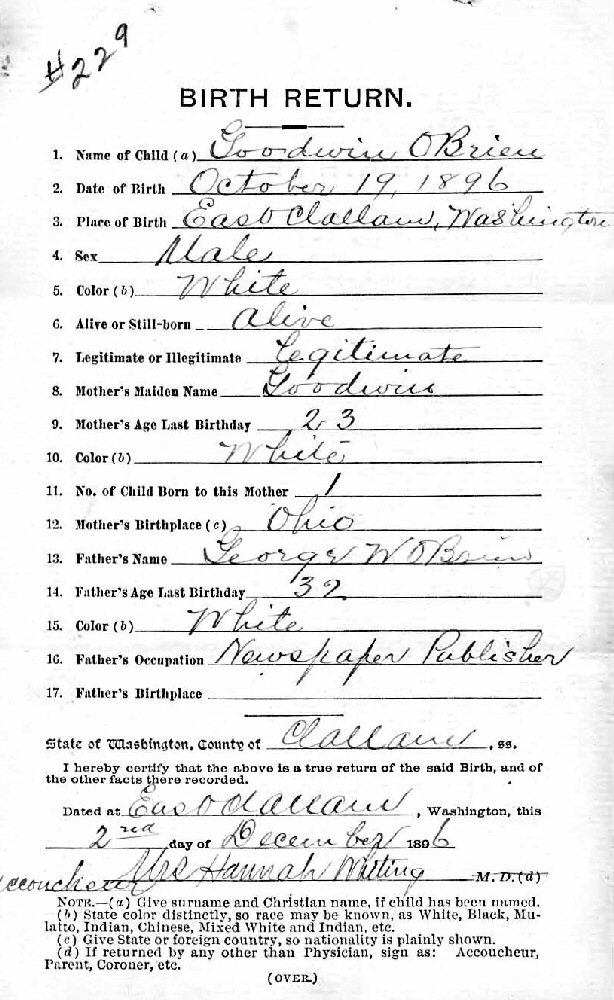 #229
BIRTH RETURN.
1. Name of Child (a) Goodwin OBrien
2. Date of Birth October 19, 1896
3. Place of Birth East Clallam, Washington
4. Sex Male
5. Color (b) White
6. Alive or Still-born Alive
7. Legitimate or Illegitimate Legitimate
8. Mother's Maiden Name Goodwin
9. Mother's Age Last Birthday 23
10. Color (b) White
11. No. of Child Born to this Mother 1
12. Mother's Birthplace (c) Ohio
13. Father's Name George W OBrien
14. Father's Age Last Birthday 32
15. Color (b) White
16. Father's Occupation Newspaper Publisher
17. Father's Birthplace
State of Washington, County of Clallam, ss.
I hereby certify that the above is a true return of the said Birth, and of
the other facts there recorded.
Dated at East Clallam, Washington, this
2nd day of December 1896
Accoucheur Mrs Hannah Whiting M. D. (d)
NOTE.—(a) Give surname and Christian name, if child has been named.
(b) State color distinctly, so race may be known, as White, Black, Mu-
latto, Indian, Chinese, Mixed White and Indian, etc.
(c) Give State or foreign country, so nationality is plainly shown.
(d) If returned by any other than Physician, sign as: Accoucheur,
Parent, Coroner, etc.
(OVER.)